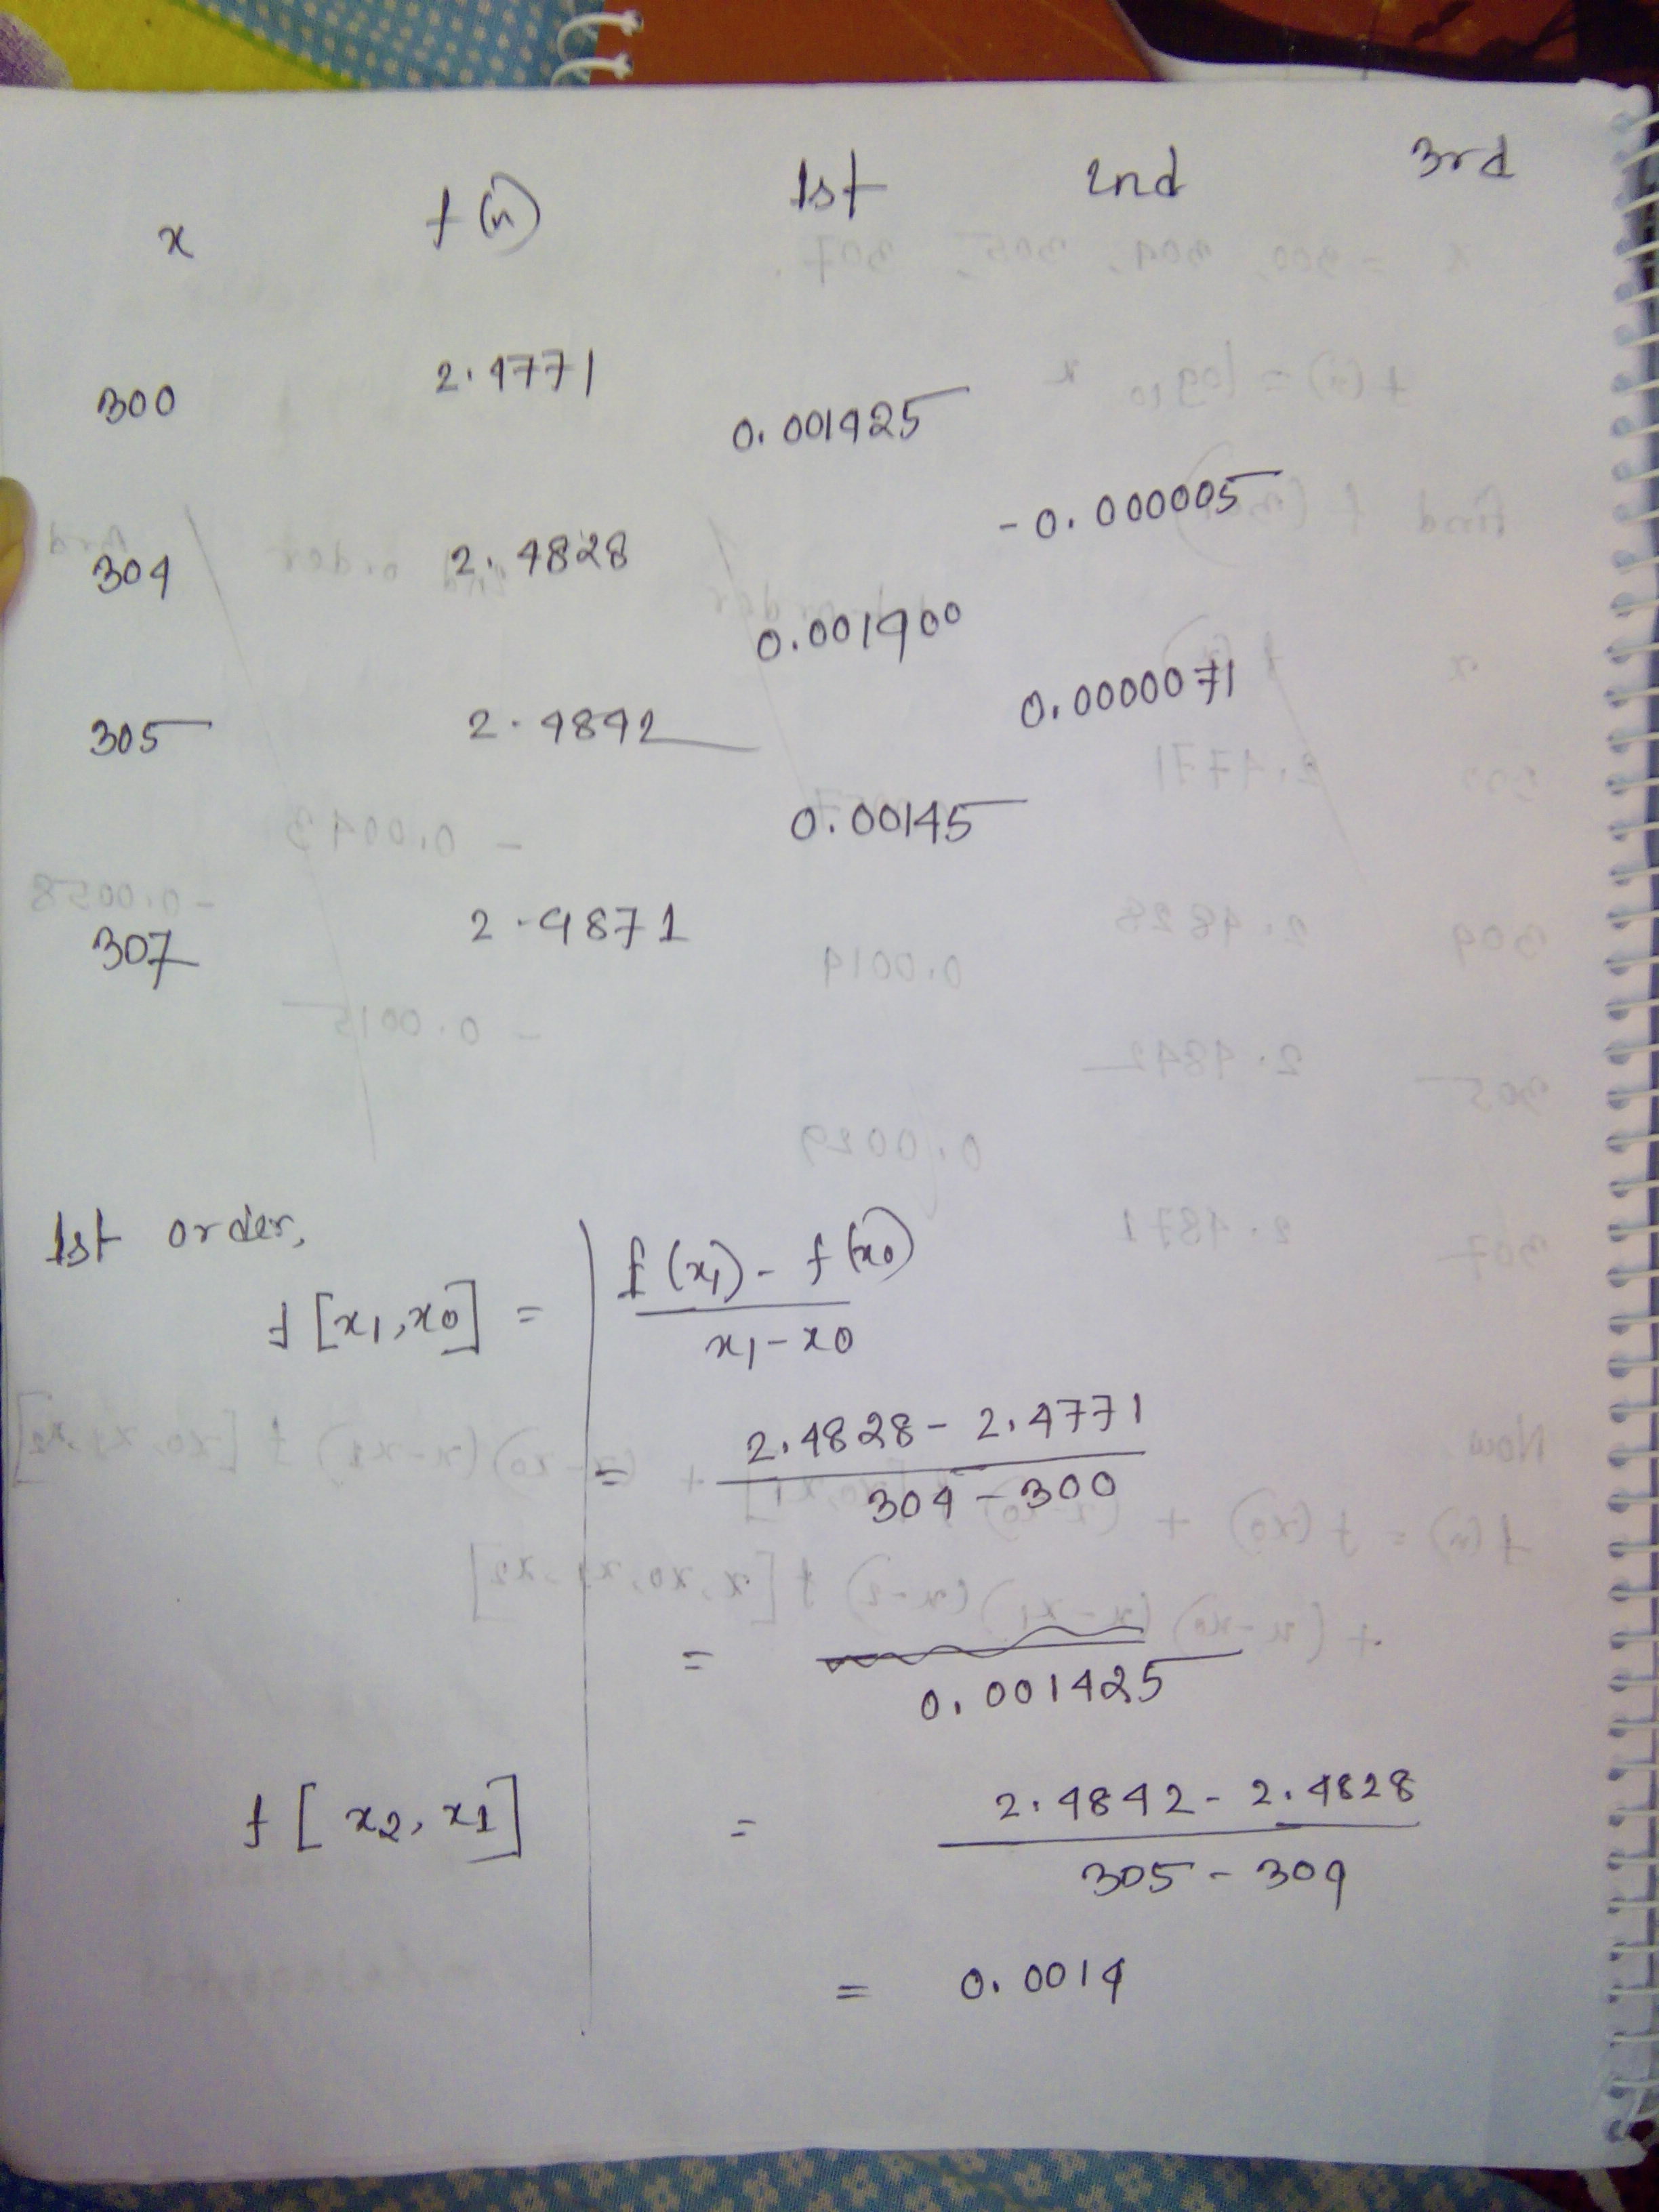 x f(x) 1st 2nd 3rd
300 2.4771
0.001425
-0.000005
304 2.4828
0.001400
0.0000071
305 2.4842
0.00145
307 2.4871
1st order,
f[x1,x0] = f(x1) - f(x0)
x1-x0
= 2.4828 - 2.4771
304 - 300
=
0.001425
f[x2,x1] = 2.4842 - 2.4828
305 - 304
= 0.0014